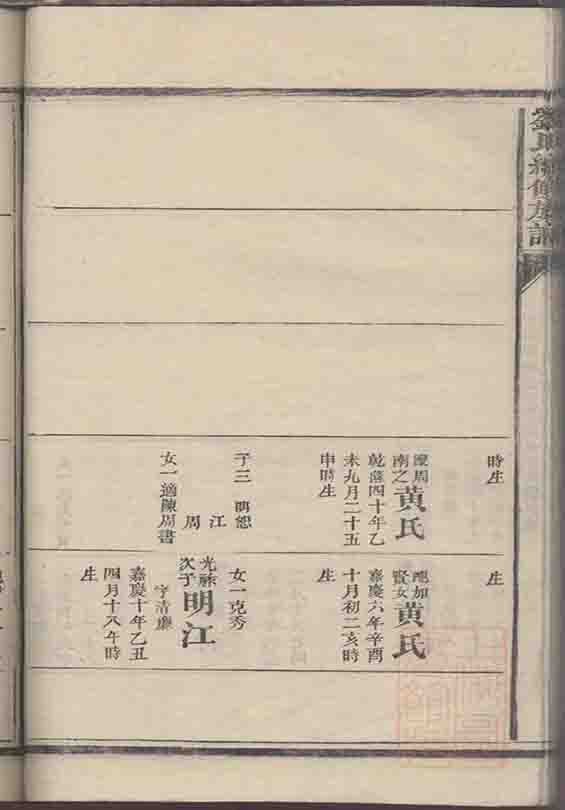 劉氏續修族譜
時生
配周南之黃氏
乾隆四十年乙
未九月二十五
申時生
子三 明悠
江
周
女一適陳周書
生
配加賢女黃氏
嘉慶六年辛酉
十月初二亥時
生
女一克秀
光祿次子明江
字清廉
嘉慶十年乙丑
四月十八午時
生